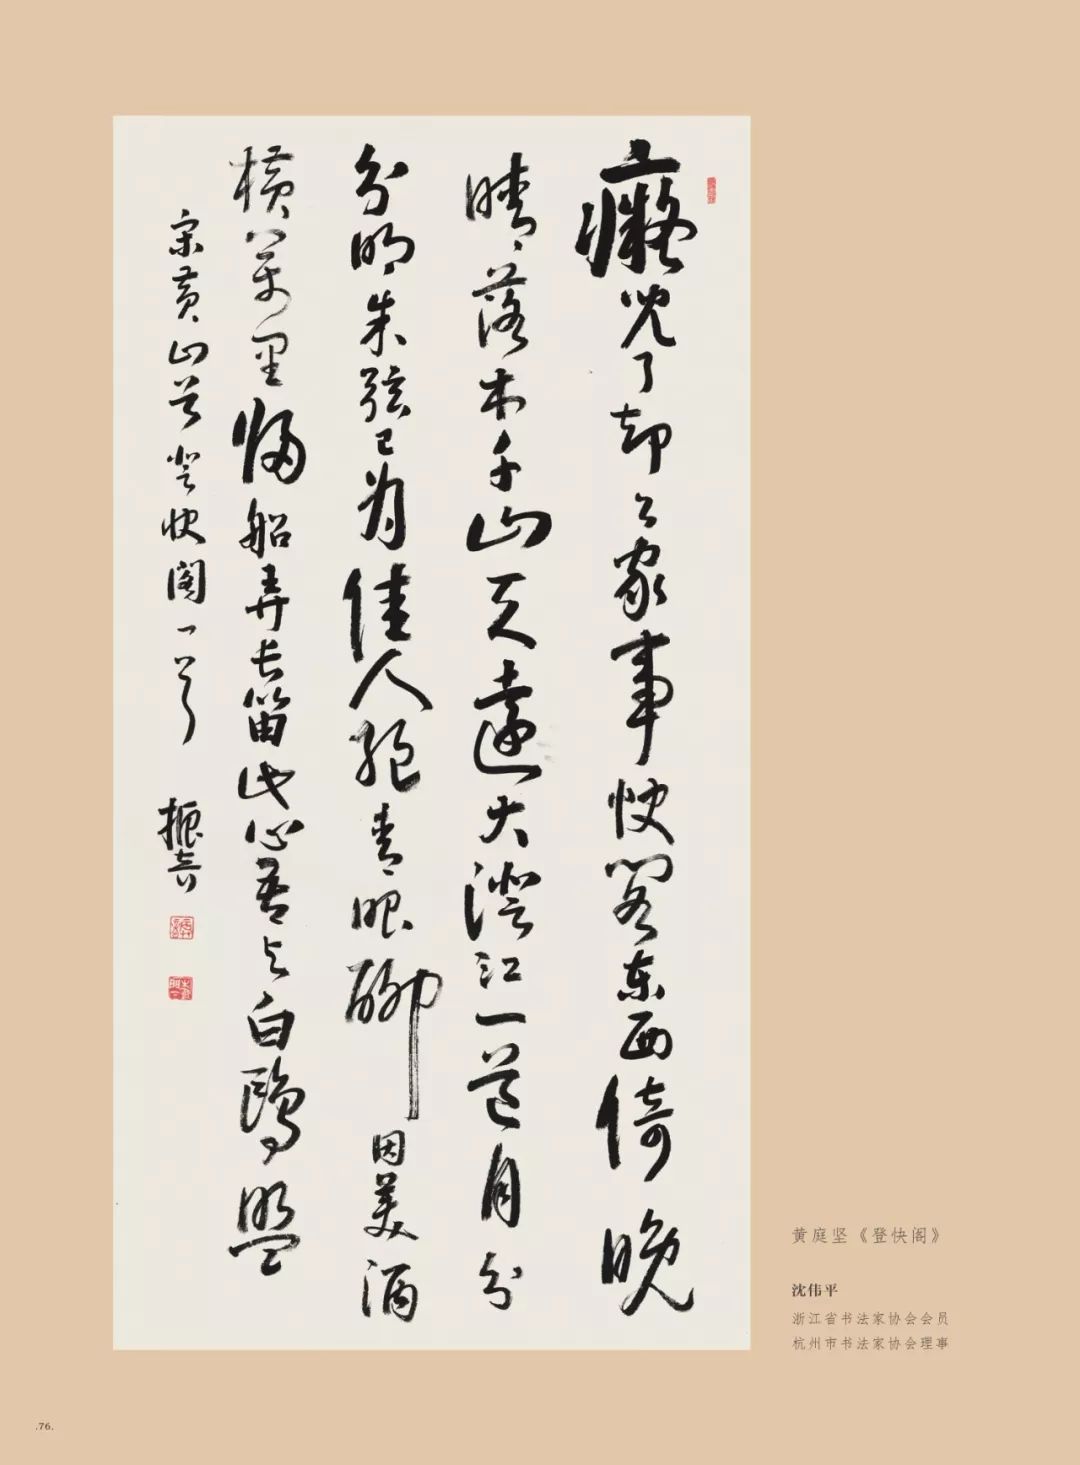 癡兒了却公家事快閣东西倚晚
晴落木千山天遠大澄江一道月分
分明朱弦已为佳人絕青眼聊因美酒
橫萬里歸船弄长笛此心吾与白鷗盟
宋黄山谷登快閣一首
黄庭坚《登快阁》
沈伟平
浙江省书法家协会会员
杭州市书法家协会理事
.76.